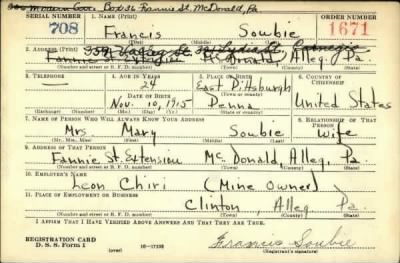 Modern Box 36 Fannie St. McDonald, Pa
SERIAL NUMBER 1. NAME (Print) ORDER NUMBER
708 Francis Soubie 1671
(First) (Middle) (Last)
2. ADDRESS (Print) 359 Valley St. Carnegie
Fannie St. Extension McDonald, Alleg, Pa.
(Number and street or R. F. D. number) (Town) (County) (State)
3. TELEPHONE 4. AGE IN YEARS 5. PLACE OF BIRTH 6. COUNTRY OF CITIZENSHIP
— 24 East Pittsburgh
DATE OF BIRTH (Town or county)
Nov. 10, 1915 Penna United States
(Exchange) (Number) (Mo.) (Day) (Yr.) (State or country)
7. NAME OF PERSON WHO WILL ALWAYS KNOW YOUR ADDRESS 8. RELATIONSHIP OF THAT PERSON
Mrs. Mary Soubie Wife
(Mr., Mrs., Miss) (First) (Middle) (Last)
9. ADDRESS OF THAT PERSON
Fannie St. Extension McDonald, Alleg, Pa.
(Number and street or R. F. D. number) (Town) (County) (State)
10. EMPLOYER'S NAME
Leon Chiri (Mine Owner)
11. PLACE OF EMPLOYMENT OR BUSINESS
Clinton, Alleg, Pa.
(Number and street or R. F. D. number) (Town) (County) (State)
I AFFIRM THAT I HAVE VERIFIED ABOVE ANSWERS AND THAT THEY ARE TRUE.
REGISTRATION CARD
D. S. S. Form 1 (over) 16—17105 Francis Soubie
(Registrant's signature)